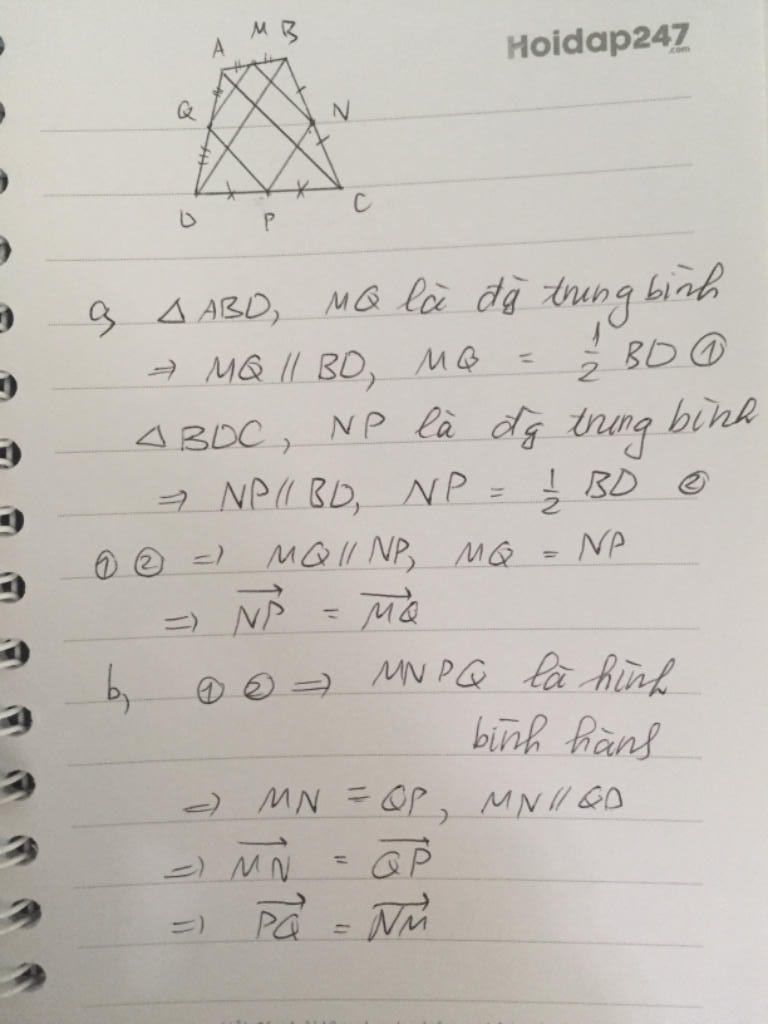 Hoidap247
.com
A M B
Q N
D P C
a, △ABD, MQ là đg̀ trung bình
⇒ MQ // BD, MQ = 1/2 BD ①
△BDC, NP là đg̀ trung bình
⇒ NP // BD, NP = 1/2 BD ②
① ② ⇒ MQ // NP, MQ = NP
⇒ \overrightarrow{NP} = \overrightarrow{MQ}
b, ① ② ⇒ MNPQ là hình
bình hành
⇒ MN = QP, MN // QD
⇒ \overrightarrow{MN} = \overrightarrow{QP}
⇒ \overrightarrow{PQ} = \overrightarrow{NM}